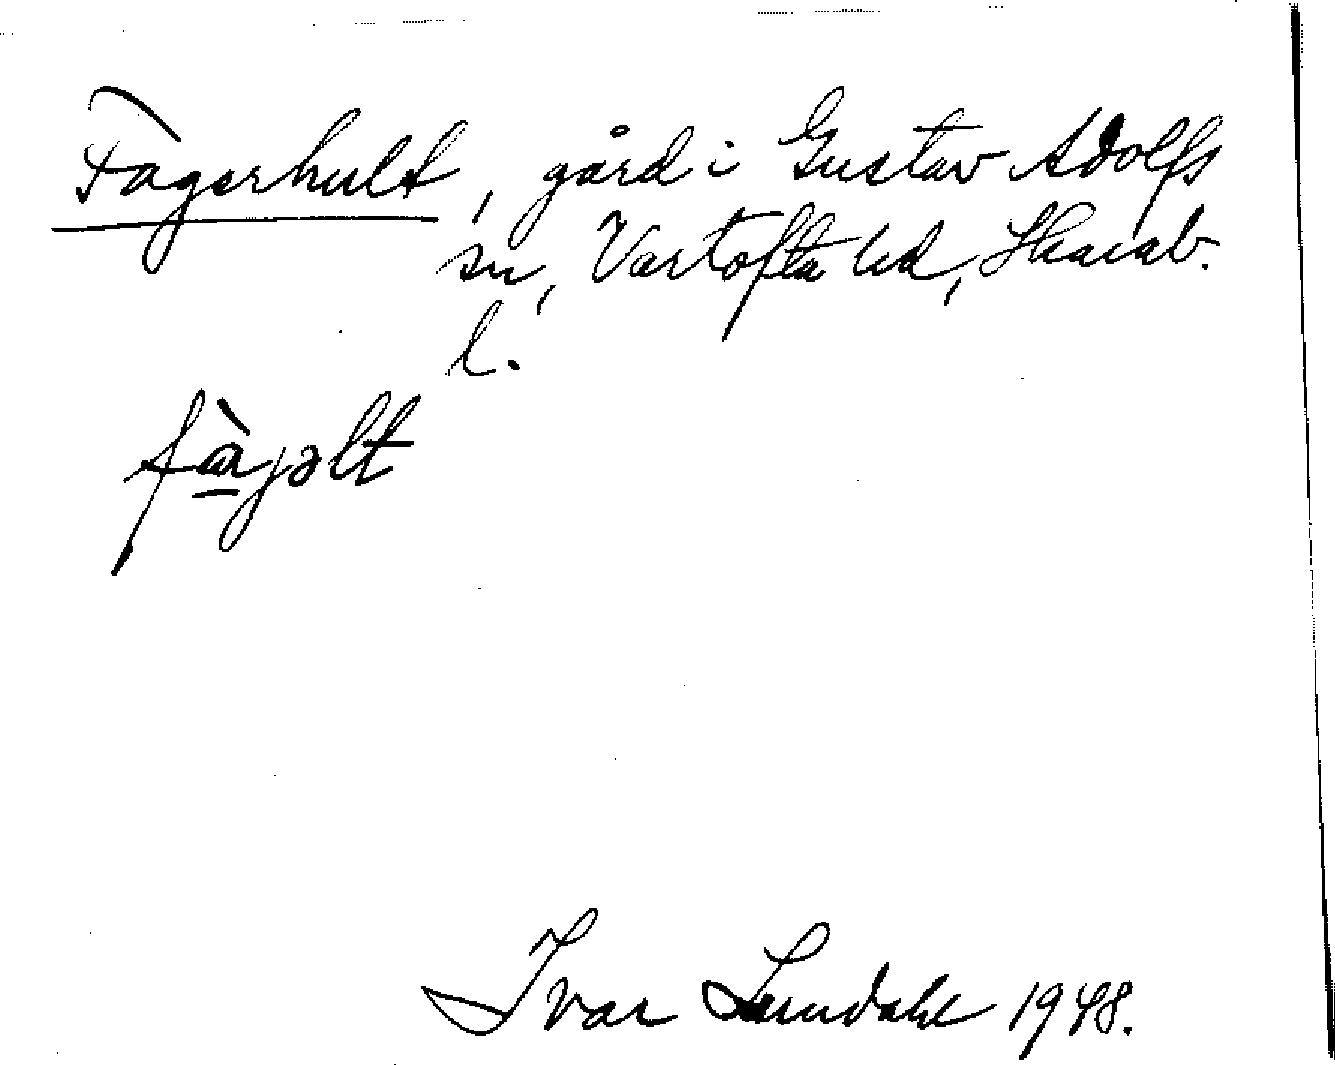 Fagerhult, gård i Gustav Adolfs
sn, Vartofta hd, Skarab.
l.
fà̱jəlt
Ivar Lundahl 1948.